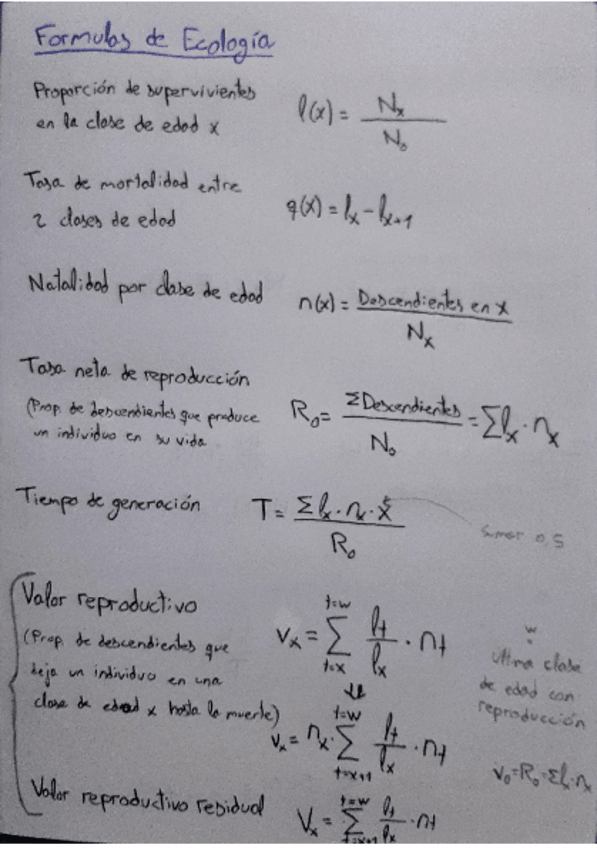 Formulas de Ecología
Proporción de supervivientes
en la clase de edad x
l(x) = Nx / N₀
Tasa de mortalidad entre
2 clases de edad
q(x) = lx - lx+1
Natalidad por clase de edad
n(x) = Descendientes en x / Nx
Tasa neta de reproducción
(Prop. de descendientes que produce
un individuo en su vida
R₀ = ΣDescendientes / N₀ = Σlx · nx
Tiempo de generación
T = Σ lx · nx · x / R₀
Sumar 0,5
Valor reproductivo
(Prop. de descendientes que
deja un individuo en una
clase de edad x hasta la muerte)
vx = Σ (t=x, t=w) lt / lx · nt
⇓
vx = nx · Σ (t=x+1, t=w) lt / lx · nt
w
=
Ultima clase
de edad con
reproducción
v₀ = R₀ = Σlx · nx
Valor reproductivo residual
Vx = Σ (t=x+1, t=w) lt / lx · nt